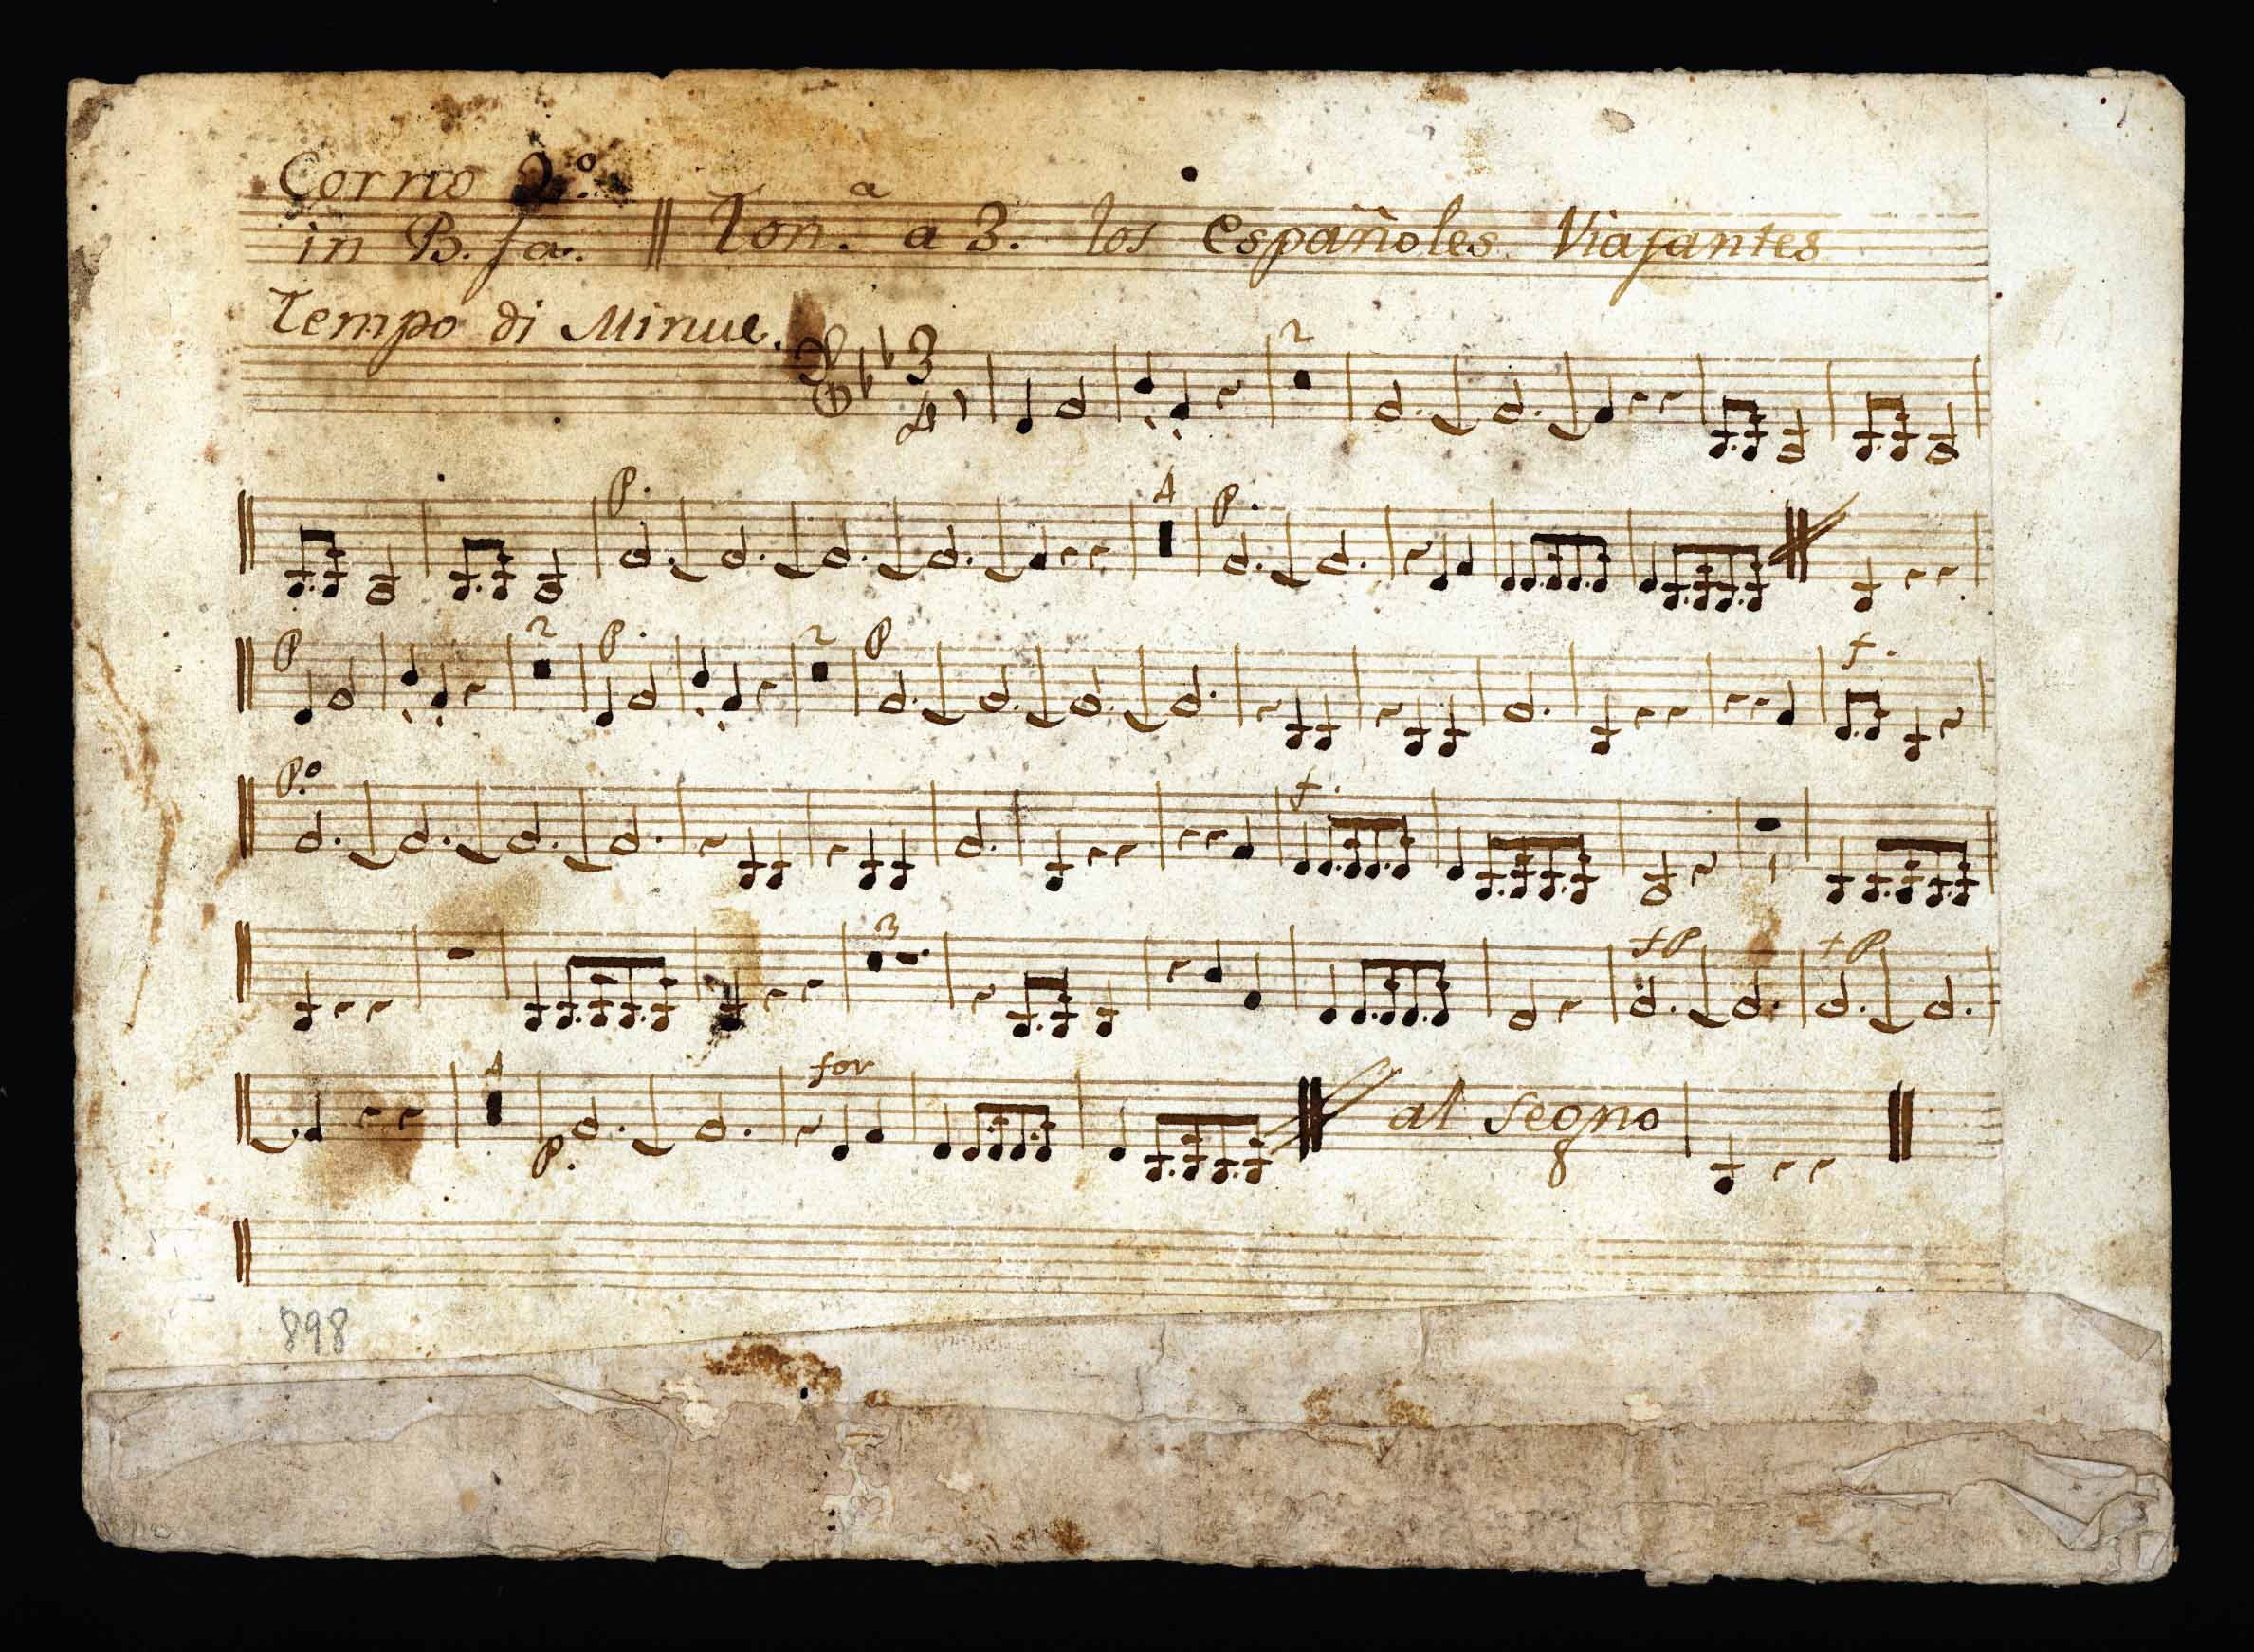 Corno 2.º
in B. fa. || Ton.ª a 3. los españoles Viajantes
Tempo di Minue.
3
4
2
P. 4 P.
P 2 P. 2 P f.
P.º f.
3 fP fP
4 P. for al segno
898